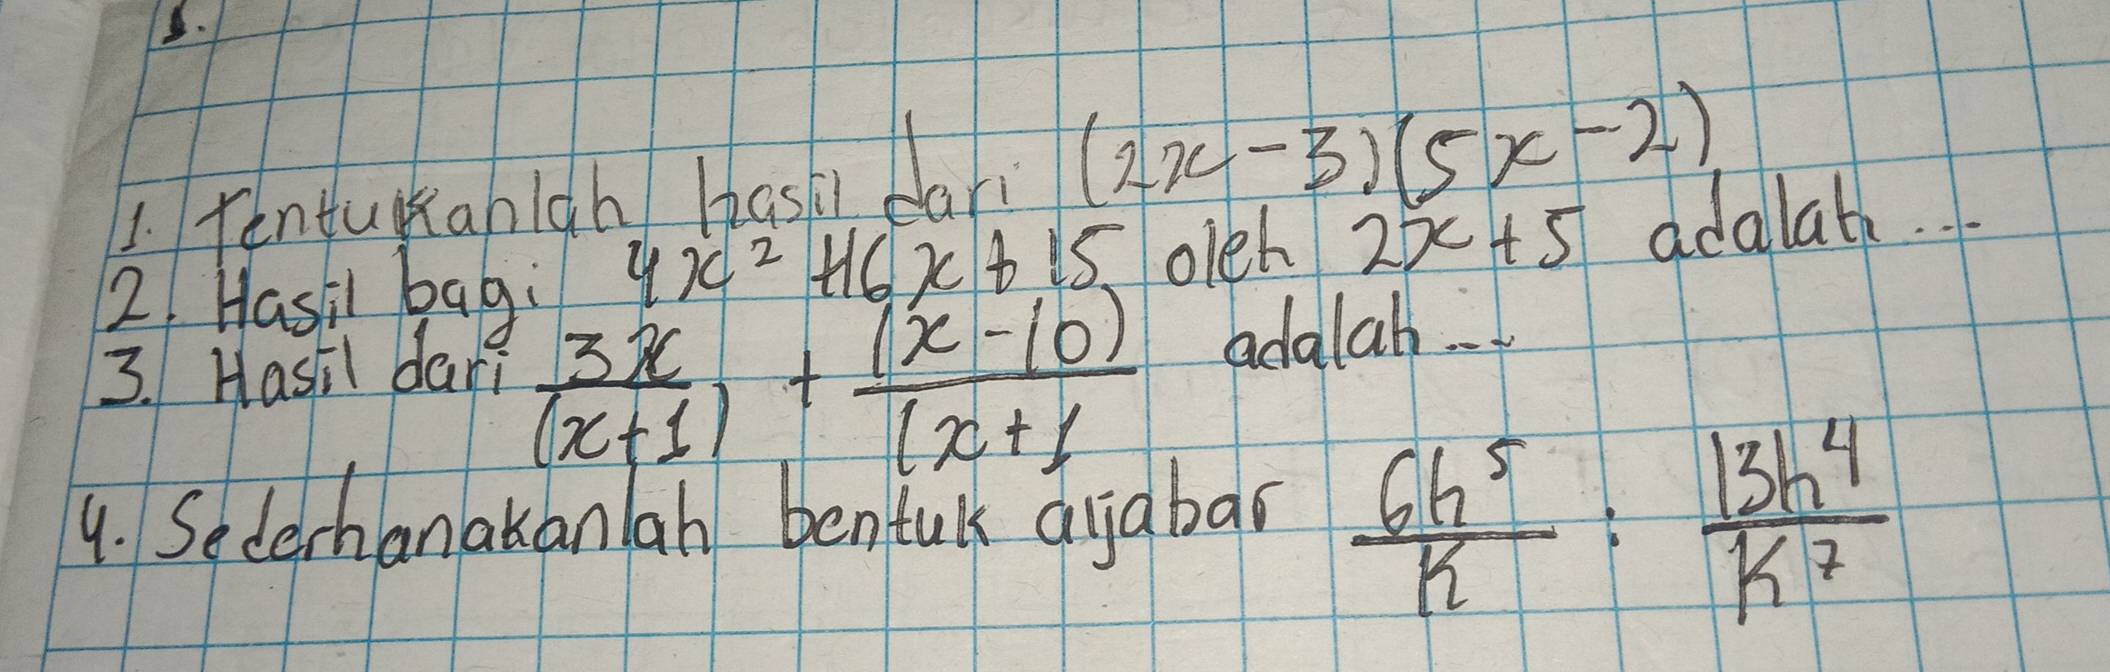 1. Tentukanlah hasil dari (2x-3)(5x-2)
2. Hasil bagi 4x² +16x + 15 oleh 2x+5 adalah...
3. Hasil dari 3x/(x+1) + (x-10)/(x+1 adalah...
4. Sederhanakanlah bentuk aljabar 6h⁵/k : 13h⁴/k⁷